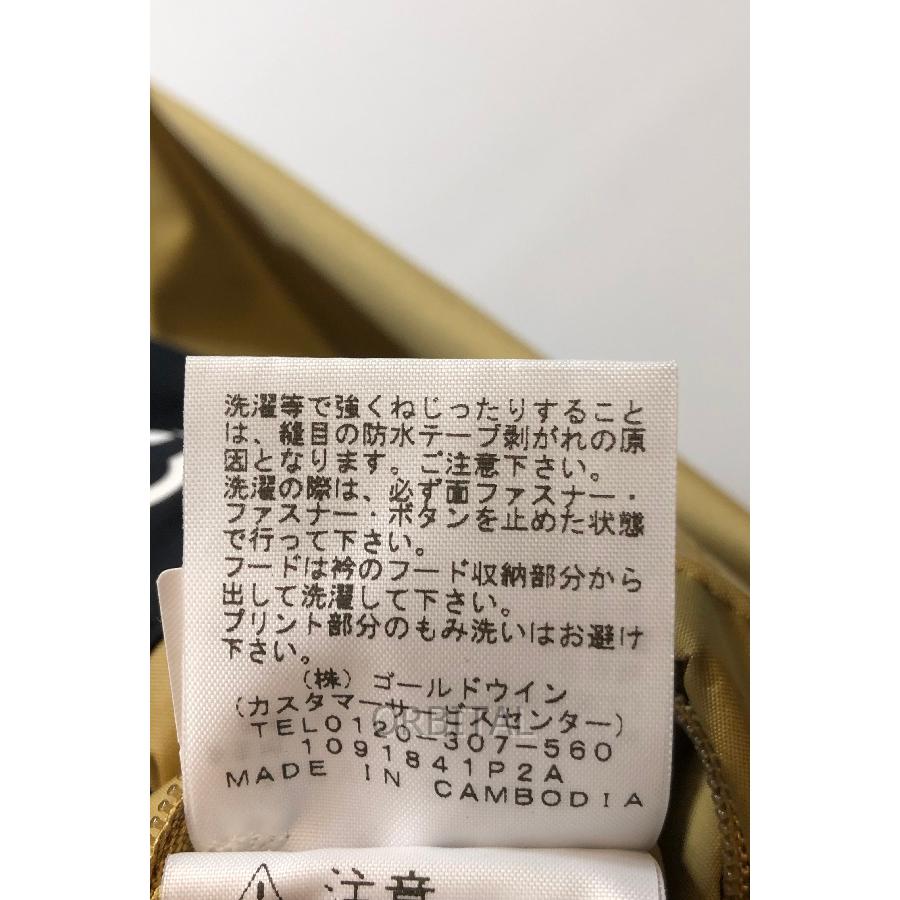 洗濯等で強くねじったりすること
は、縫目の防水テープ剥がれの原
因となります。ご注意下さい。
洗濯の際は、必ず面ファスナー・
ファスナー・ボタンを止めた状態
で行って下さい。
フードは衿のフード収納部分から
出して洗濯して下さい。
プリント部分のもみ洗いはお避け
下さい。
(株) ゴールドウイン
(カスタマーサービスセンター)
ORBITAL
TEL0120-307-560
1091841P2A
MADE IN CAMBODIA
注意